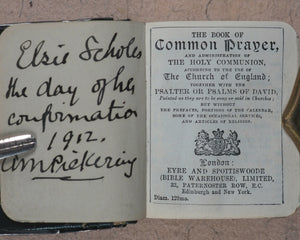 Elsie Scholes
the day of her
confirmation
1912.
WmPickering
THE BOOK OF
Common Prayer,
AND ADMINISTRATION OF
THE HOLY COMMUNION,
ACCORDING TO THE USE OF
The Church of England;
TOGETHER WITH THE
PSALTER OR PSALMS OF DAVID,
Pointed as they are to be sung or said in Churches;
BUT WITHOUT
THE PREFACES, PORTIONS OF THE CALENDAR,
SOME OF THE OCCASIONAL SERVICES,
AND ARTICLES OF RELIGION.
London:
EYRE AND SPOTTISWOODE
(BIBLE WAREHOUSE), LIMITED,
33, PATERNOSTER ROW, E.C.
Edinburgh and New York.
Diam. 128mo.